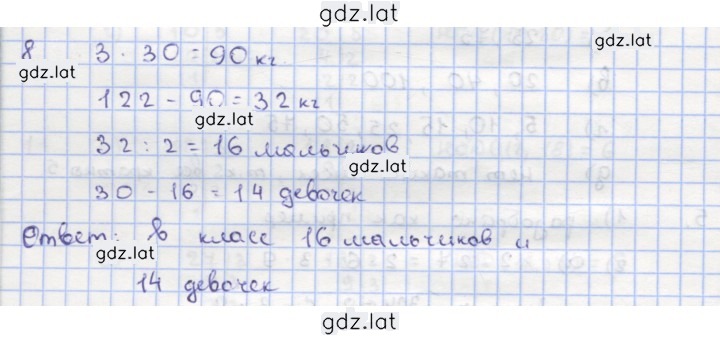 gdz.lat
8 3 · 30 = 90 кг
gdz.lat
122 - 90 = 32 кг
gdz.lat
32 : 2 = 16 мальчиков
gdz.lat
30 - 16 = 14 девочек
Ответ: в класс 16 мальчиков и
gdz.lat
14 девочек
gdz.lat
gdz.lat